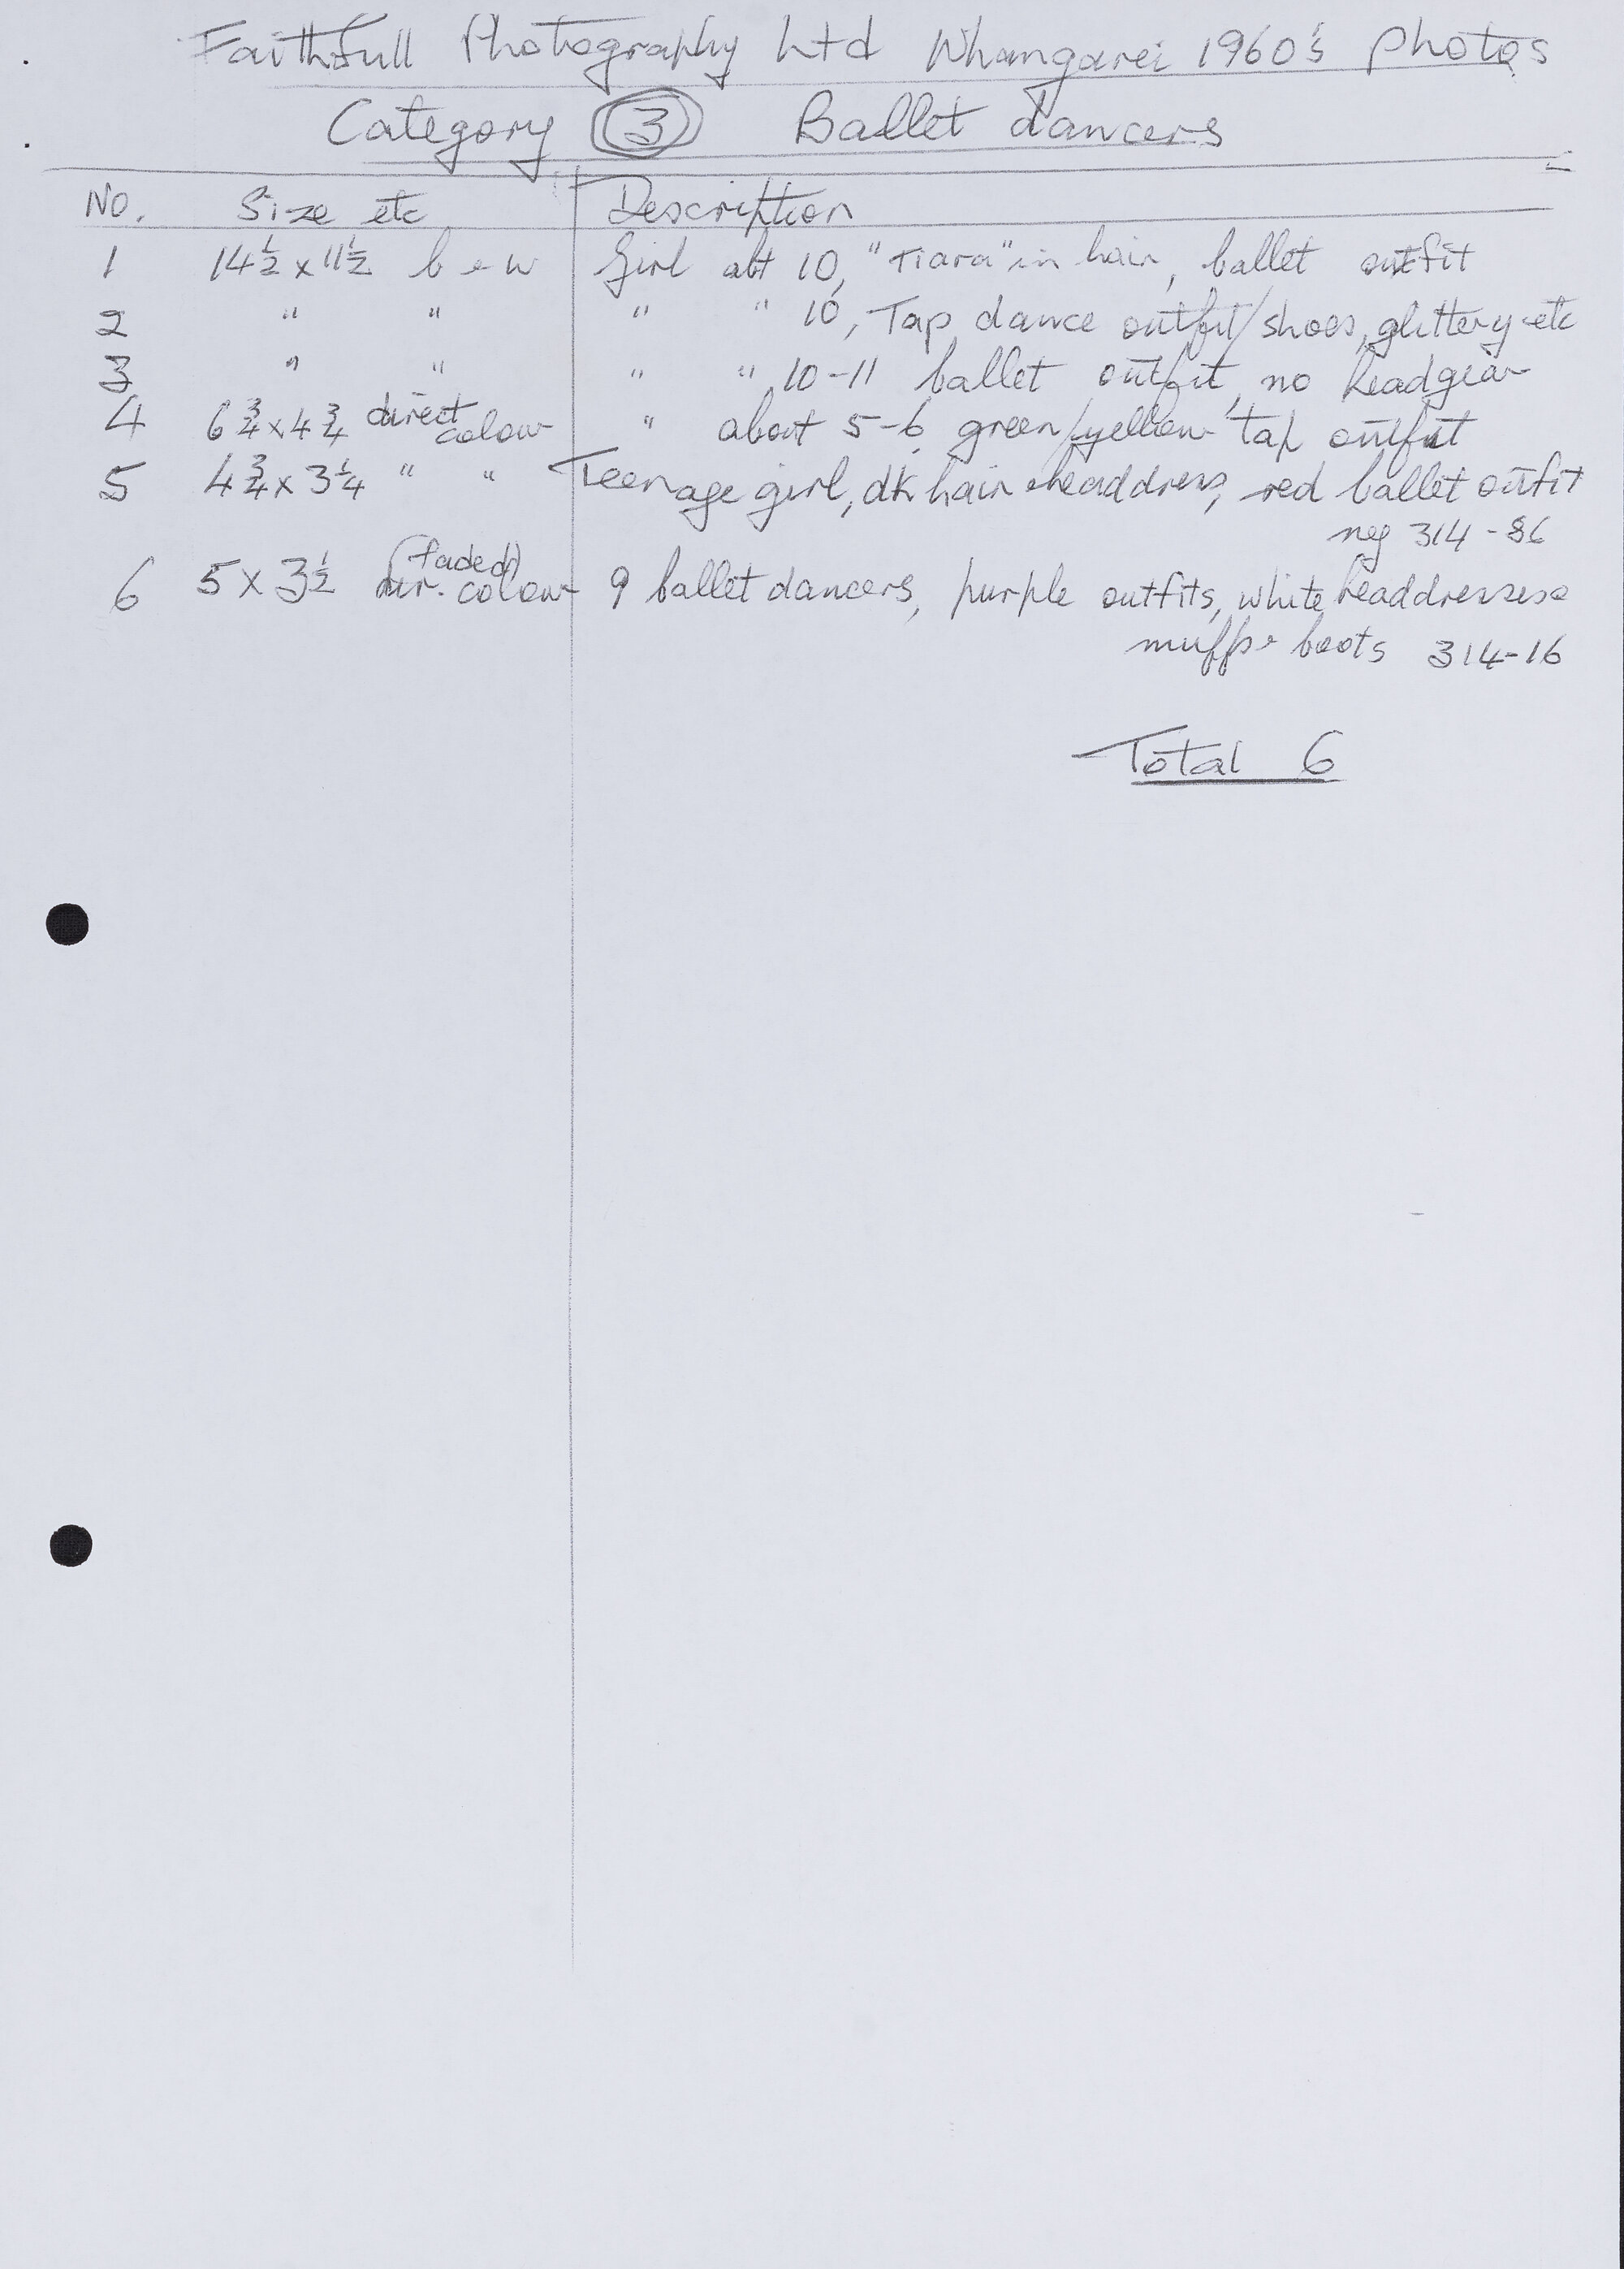 Faithfull Photography Ltd Whangarei 1960's photos
Category 3 Ballet dancers
No. Size etc Description
1 14½ x 11½ b & w Girl abt 10, "Tiara" in hair, ballet outfit
2 " " " " 10, Tap dance outfit/shoes, glittery etc
3 " " " " 10-11 ballet outfit, no headgear
4 6¾ x 4¾ direct colour " about 5-6, green/yellow tap outfit
5 4¾ x 3¼ " " Teenage girl, dk hair & headdress, red ballet outfit
neg 314-86
6 5 x 3½ dir. colour (faded) 9 ballet dancers, purple outfits, white headdresses &
muffs & boots 314-16
Total 6